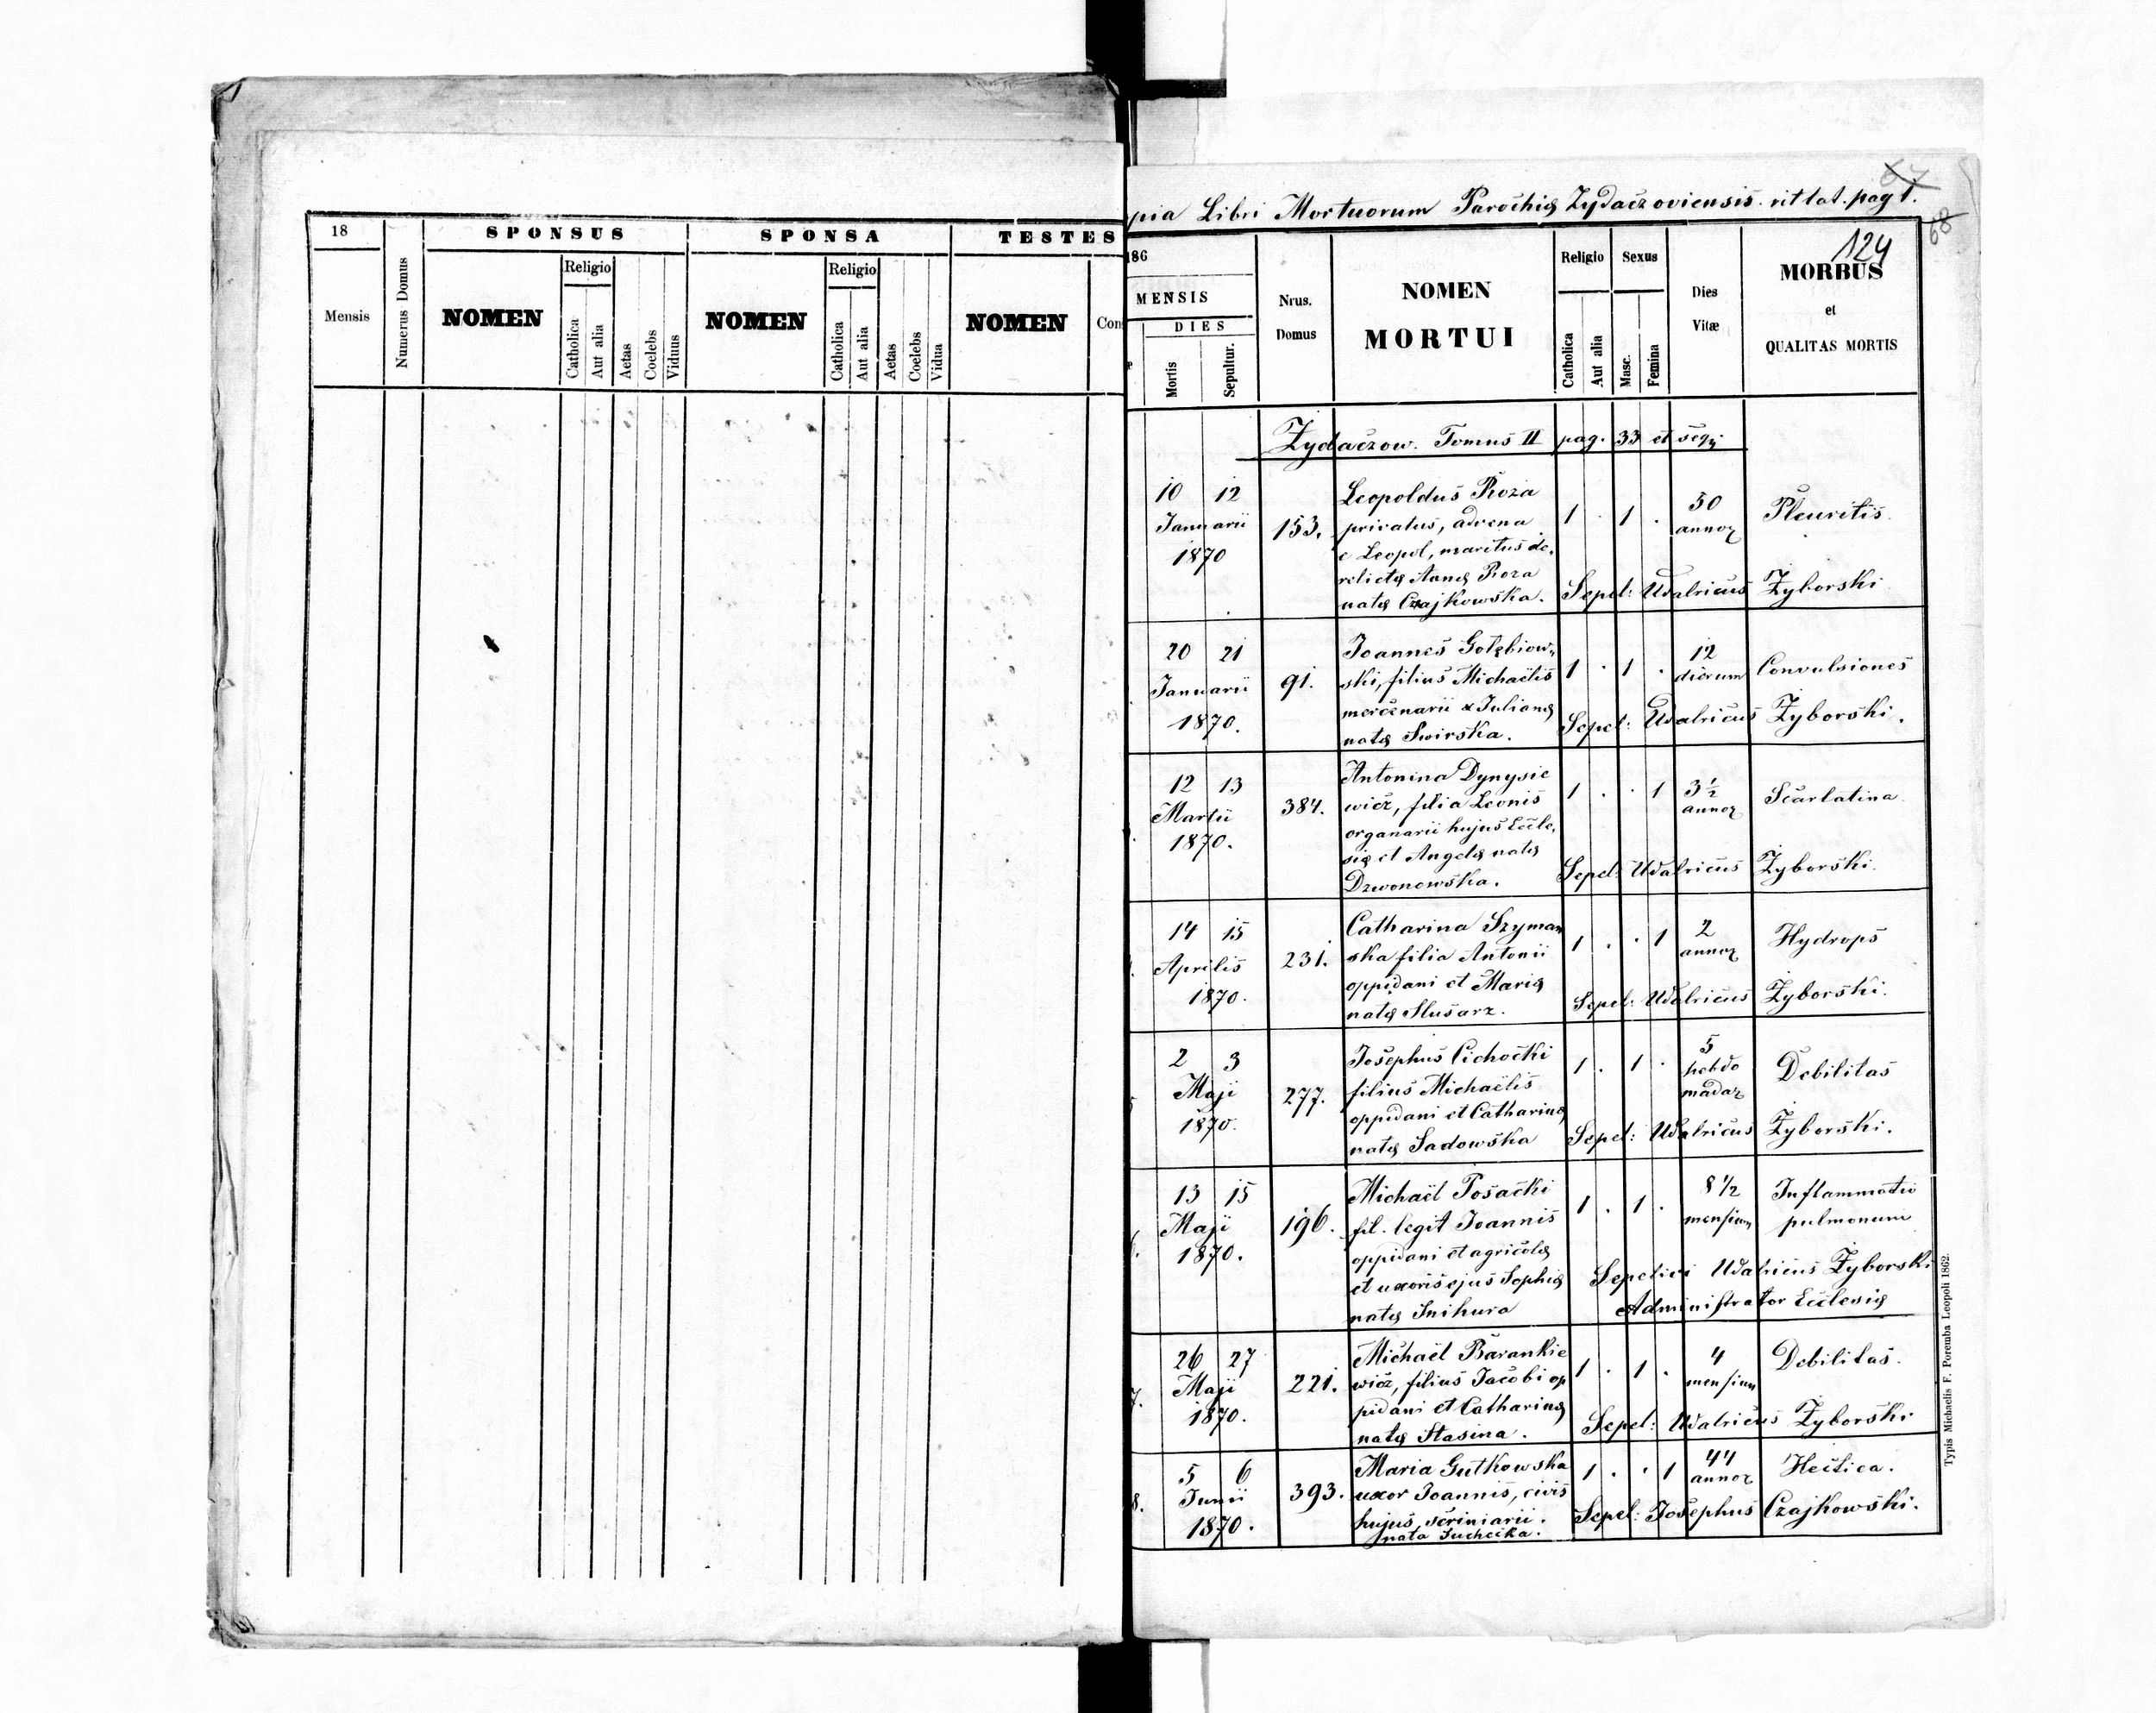 18
Mensis
Numerus Domus
SPONSUS
NOMEN
Religio
Catholica
Aut alia
Aetas
Coelebs
Viduus
SPONSA
NOMEN
Religio
Catholica
Aut alia
Aetas
Coelebs
Vidua
TESTES
NOMEN
Con
pia Libri Mortuorum Parochiæ Zydaczoviensis rit lat. pag 1.
67
68
124
186
MENSIS
DIES
Mortis
Sepultur.
Nrus.
Domus
NOMEN
MORTUI
Religio
Catholica
Aut alia
Sexus
Masc.
Femina
Dies
Vitæ
MORBUS
et
QUALITAS MORTIS
Zydaczow. Tomus II pag. 33 et seq.
10 12
Januarii
1870
153.
Leopoldus Roza
privatus, advena
e Leopol, maritus de-
relictæ Annæ Roza
natæ Czajkowska.
1 . 1 .
50
annor
Pleuritis.
Sepel: Udalricus Żyborski
20 21
Januarii
1870.
91.
Joannes Gołębiow-
ski, filius Michaëlis
mercenarii & Julianæ
natæ Swirska.
1 . 1 .
12
dierum
Convulsiones
Sepel: Udalricus Żyborski.
12 13
Martii
1870.
384.
Antonina Dynysie
wicz, filia Leonis
organarii hujus Eccle-
siæ et Angelæ natæ
Dzwonowska.
1 . . 1
3 1/2
annor
Scarlatina
Sepel: Udalricus Żyborski.
14 15
Aprilis
1870.
231.
Catharina Szyman
ska filia Antonii
oppidani et Mariæ
natæ Slusarz.
1 . . 1
2
annor
Hydrops
Sepel: Udalricus Żyborski.
5
2 3
Maji
1870.
277.
Josephus Cichocki
filius Michaëlis
oppidani et Catharinæ
natæ Sadowska
1 . 1 .
5
hebdo
madar
Debilitas
Sepel: Udalricus Żyborski.
6.
13 15
Maji
1870.
196.
Michaël Posacki
fil. legit Joannis
oppidani et agricolæ
et uxoris ejus Sophiæ
natæ Snihura
1 . 1 .
8 1/2
mensium
Inflammatio
pulmonum
Sepelivi Udalricus Żyborski
Administrator Ecclesiæ
7.
26 27
Maji
1870.
221.
Michaël Barankie
wicz, filius Jacobi op
pidani et Catharinæ
natæ Stasina.
1 . 1 .
4
mensium
Debilitas.
Sepel: Udalricus Żyborski
8.
5 6
Junii
1870.
393.
Maria Gutkowska
uxor Joannis, civis
hujus, scriniarii.
nata Suchcika.
1 . . 1
44
annor
Hectica.
Sepel: Josephus Czajkowski.
Typis Michaelis F. Poremba Leopoli 1862.